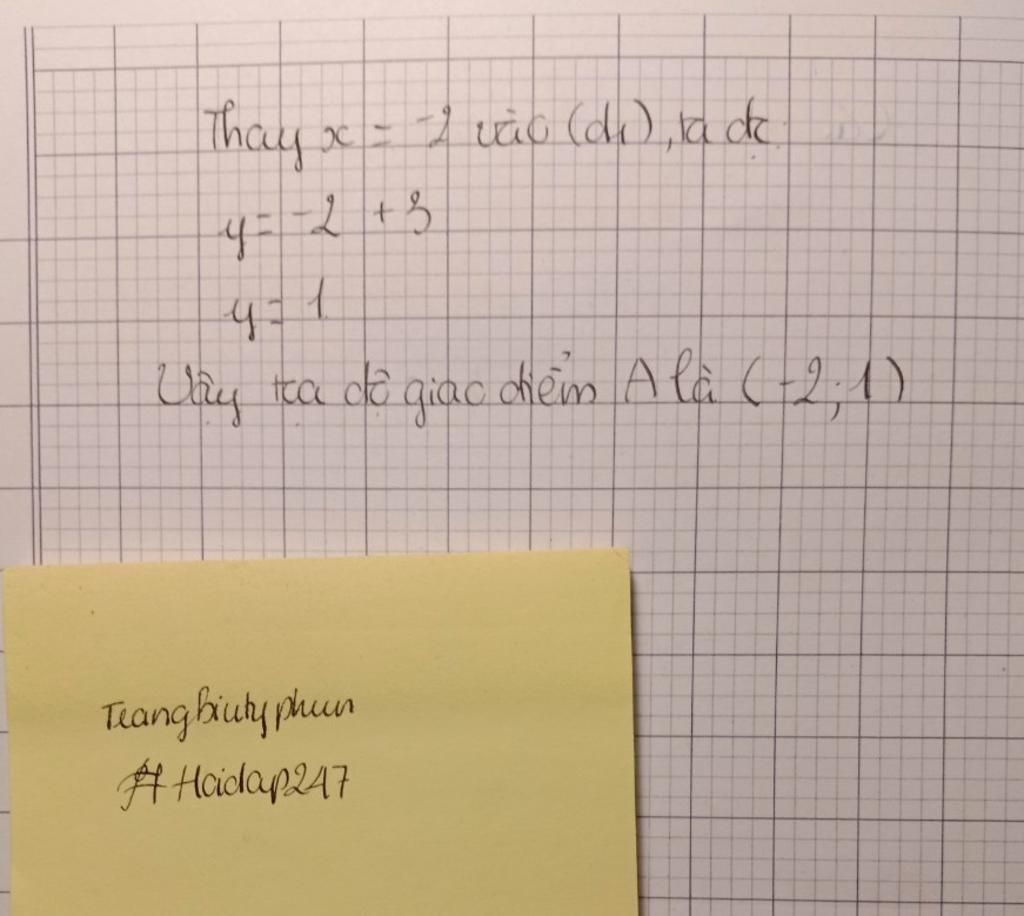 Thay x = -2 vào (d1), ta đc
y = -2 + 3
y = 1
Vậy tọa độ giao điểm A là (-2; 1)
Trangbiutyphun
#Hoidap247